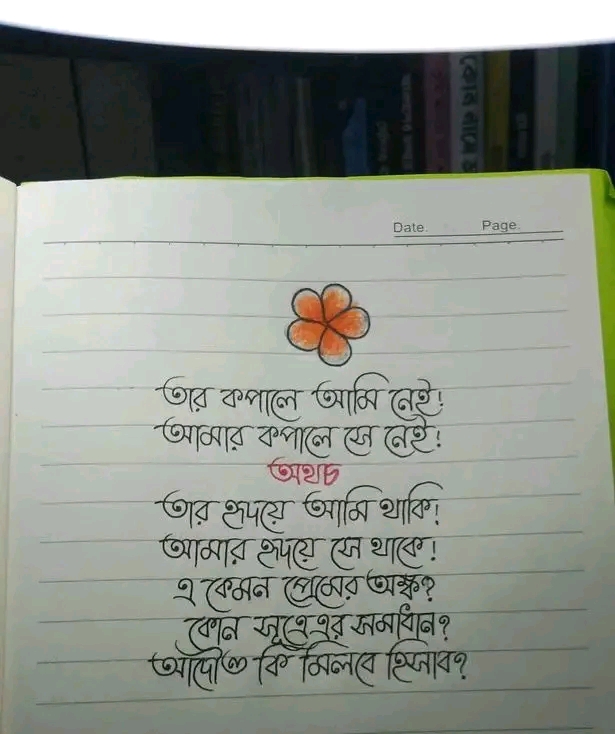 Date. Page.
তার কপালে আমি নেই!
আমার কপালে সে নেই!
অথচ
তার হৃদয়ে আমি থাকি!
আমার হৃদয়ে সে থাকে!
এ কেমন প্রেমের অঙ্ক?
কোন সূত্রে এর সমাধান?
আদৌও কি মিলবে হিসাব?